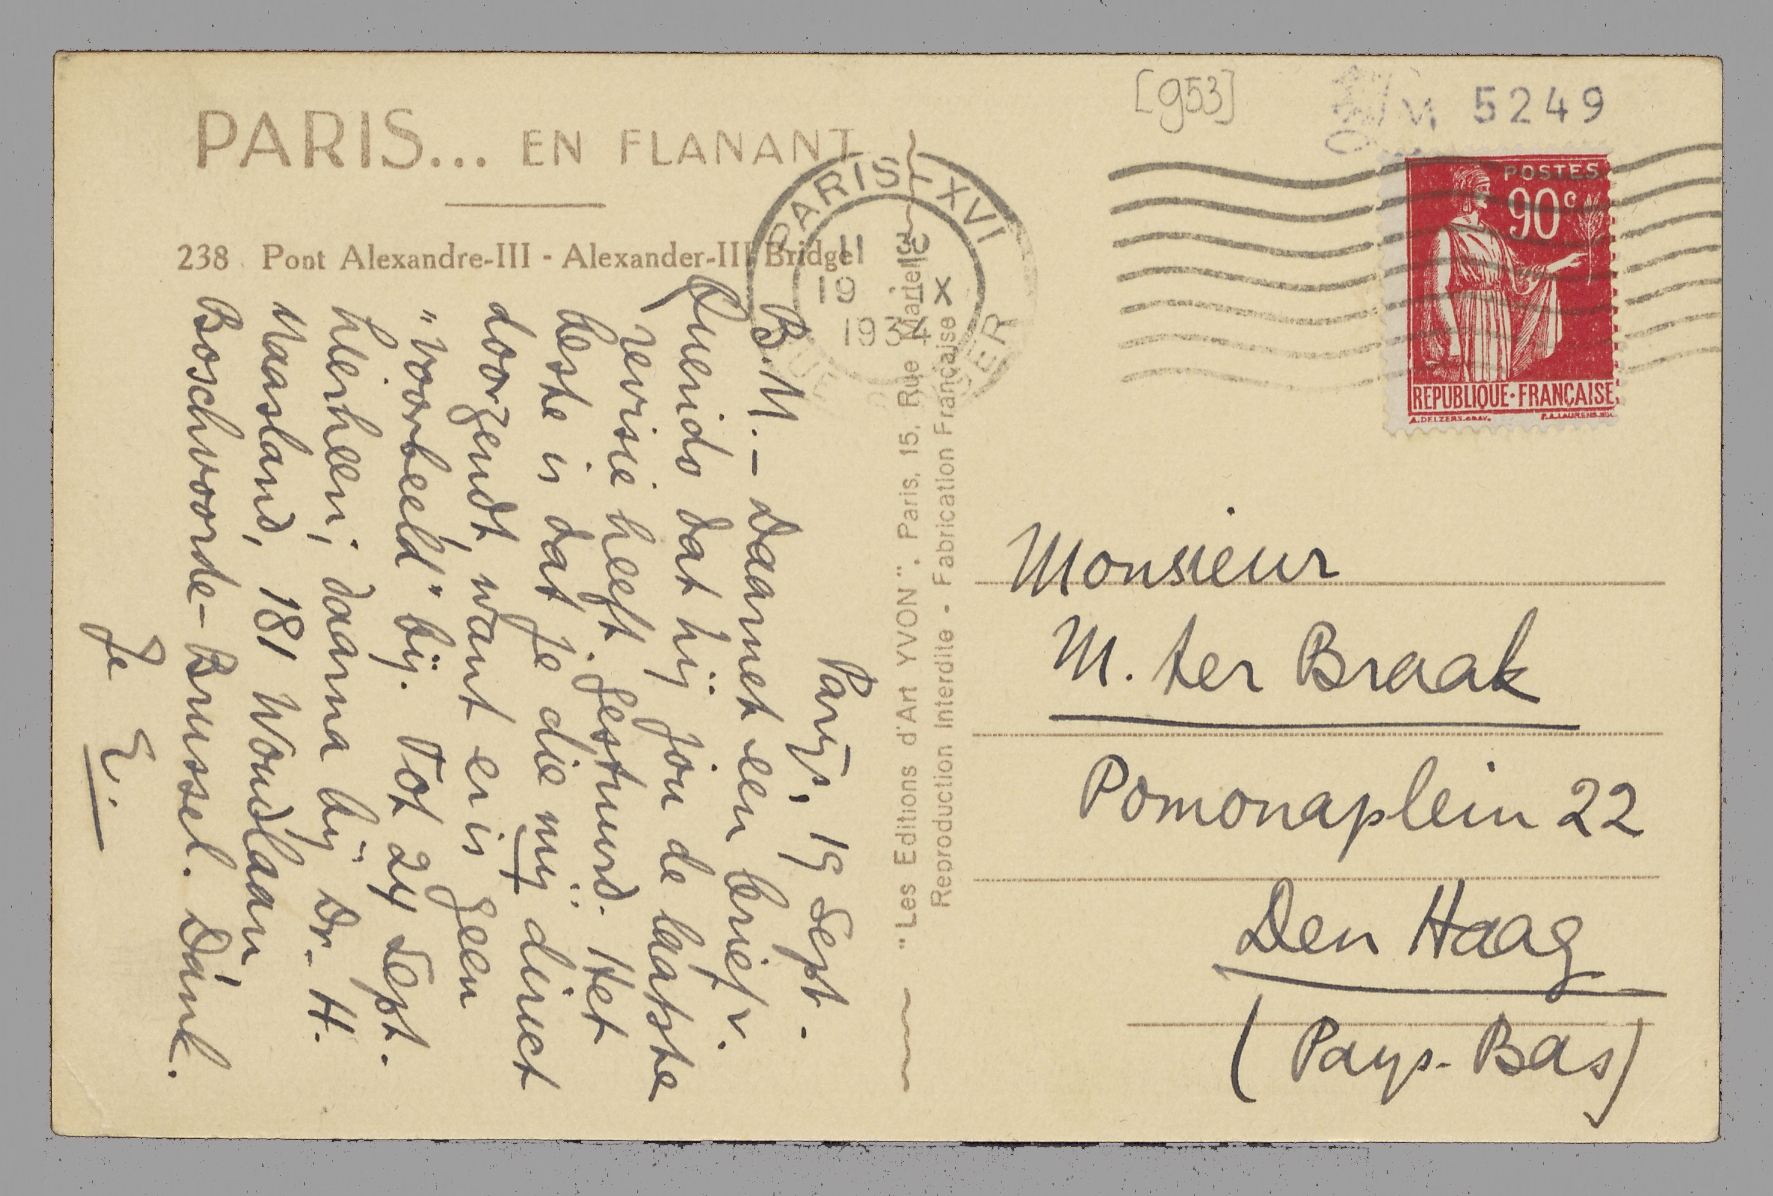 PARIS... EN FLANANT
238 Pont Alexandre-III - Alexander-III Bridge
Parijs, 19 Sept.
B.M. – Daarnet een brief v.
Querido dat hij jou de laatste
revisie heeft gestuurd. Het
beste is dat je die mij direct
doorzendt, want er is geen
"voorbeeld" bij. Tot 24 Sept.
hierheen; daarna bij Dr. H.
Maasland, 181 Woudlaan
Boschvoorde-Brussel. Dank.
Je E.
"Les Editions d'Art YVON". Paris, 15, Rue Martel
Reproduction Interdite - Fabrication Française
[953]
5249
PARIS XVI
19 IX
1934
POSTES
90c
REPUBLIQUE·FRANÇAISE
Monsieur
M. ter Braak
Pomonaplein 22
Den Haag
(Pays-Bas)